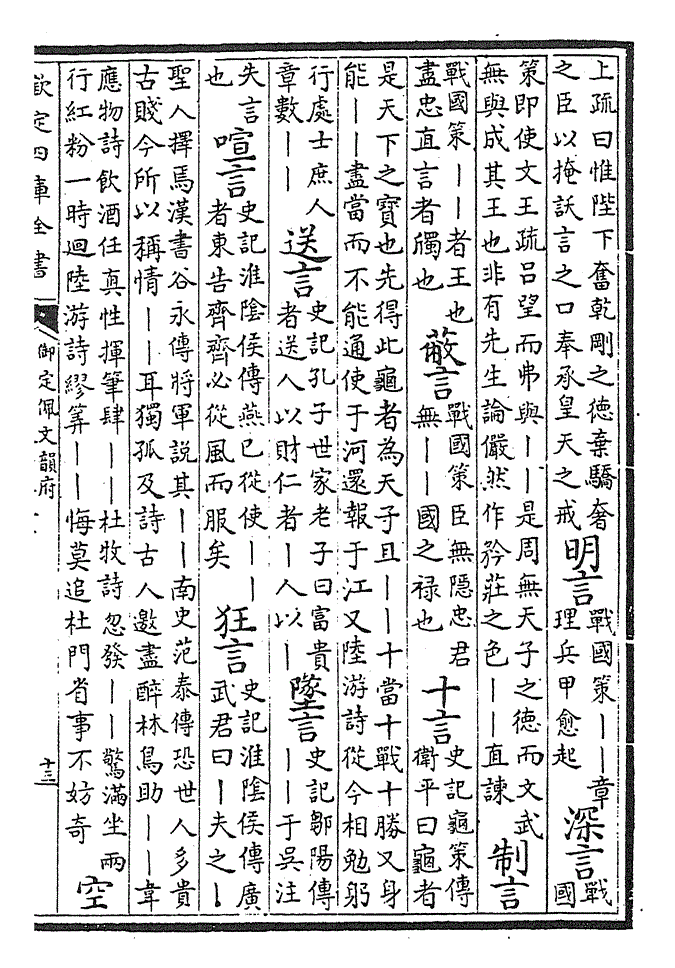 上疏曰惟陛下奮乾剛之德棄驕奢
之臣以掩訞言之口奉承皇天之戒
明言
戰國策｜｜章
理兵甲愈起
深言
戰
國
策即使文王疏吕望而弗與｜｜是周無天子之德而文武
無與成其王也非有先生論儼然作矜莊之色｜｜直諫
制言
戰國策｜｜者王也
盡忠直言者斶也
蔽言
戰國策臣無隱忠君
無｜｜國之禄也
十言
史記龜策傳
衛平曰龜者
是天下之寶也先得此龜者為天子且｜｜十當十戰十勝又身
能｜｜盡當而不能通使于河還報于江又陸游詩從今相勉躬
行處士庶人
章數｜｜
送言
史記孔子世家老子曰富貴
者送人以財仁者｜人以｜
墜言
史記鄒陽傳
｜｜于吳注
失言
也
喧言
史記淮陰侯傳燕已從使｜｜
者東告齊齊必從風而服矣
狂言
史記淮陰侯傳廣
武君曰｜夫之｜
聖人擇焉漢書谷永傳將軍説其｜｜南史范泰傳恐世人多貴
古賤今所以稱情｜｜耳獨孤及詩古人邀盡醉林鳥助｜｜韋
應物詩飲酒任真性揮筆肆｜｜杜牧詩忽發｜｜驚滿坐兩
行紅粉一時迴陸游詩繆筭｜｜悔莫追杜門省事不妨奇
空
欽定四庫全書
御定佩文韻府
十三